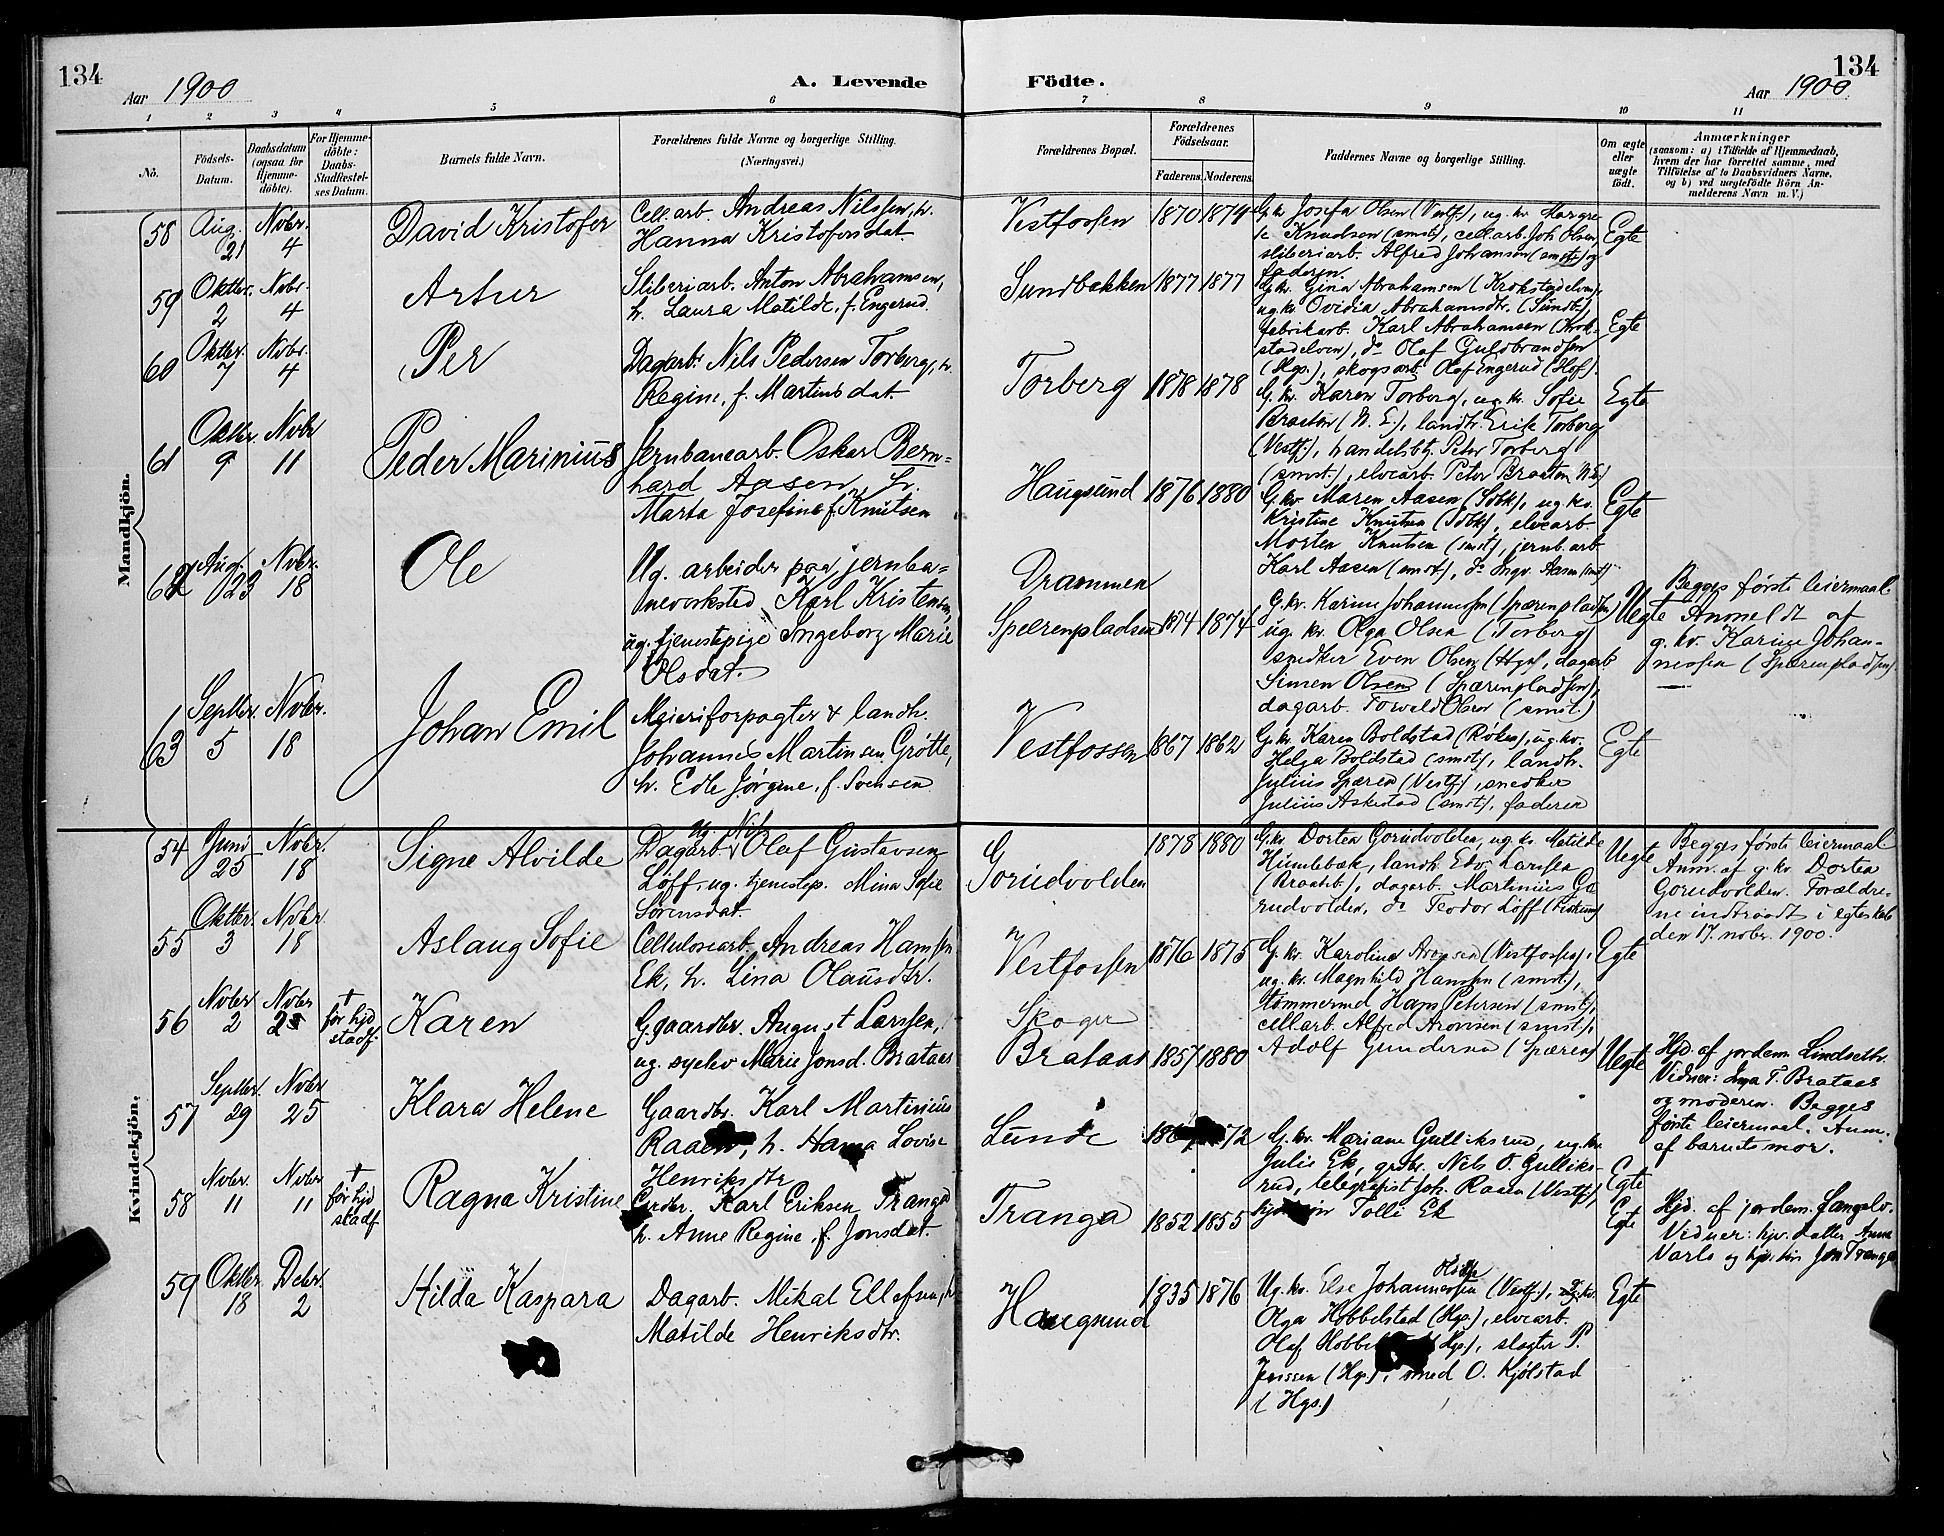 134
Aar 1900
A. Levende
Födte.
134
Aar 1900
1 2 3 4 5 6 7 8 9 10 11
No.
Födsels-Datum.
Daabsdatum (ogsaa for Hjemme-döbte).
For Hjemme-döbte: Daabs-Stadfæstel-ses Datum.
Barnets fulde Navn.
Forældrenes fulde Navne og borgerlige Stilling.
(Næringsvei.)
Forældrenes Bopæl.
Forældrenes Födselsaar.
Faderens. Moderens.
Faddernes Navne og borgerlige Stilling.
Om ægte eller uægte födt.
Anmærkninger
(saasom: a) i Tilfælde af Hjemmedaab,
hvem der har forrettet samme, med
Tilföielse af to Daabsvidners Navne,
og b) ved uægtefödte Börn An-
melderens Navn m. V.)
Mandkjön.
58 Aug. 21 Novbr. 4 David Kristofer
Cell.arb. Andreas Nilssen, h.
Hanna Kristofersdat.
Vestfossen 1870 1874
G.kv. Josefa Olsen (Vestf.), ug. kv. Margre-
te Knudsen (smst.), cell.arb. Joh. Olsen,
sliberiarb. Alfred Johansen (smst.) og
faderen.
Egte
59 Oktbr. 2 Novbr. 4 Artur
Sliberiarb. Anton Abrahamsen,
h. Laura Matilde, f. Engerud.
Sundbakken 1877 1877
G.kv. Gina Abrahamsen (Krokstadelven),
ug.kv. Ovidia Abrahamsdtr. (Sundt.),
fabrikarb. Karl Abrahamsen (Krok-
stadelven), do Olaf Guldbrandsen
(Hgs.), skogsarb. Olaf Engerud (Hof).
Egte
60 Oktbr. 7 Novbr. 4 Per
Dagarb. Nils Pedersen Torberg, h.
Regine, f. Martinsdat.
Torberg 1878 1878
G. kv. Karen Torberg, ug. kv. Sofie
Braaten (N. E.), landh. Erik Torberg
(Vestf.), handelsbtj. Peter Torberg
(smst.), elvearb. Peter Braaten (N.E.)
Egte
61 Oktbr. 9 Novbr. 11 Peder Marinius
Jernbanearb. Oskar Bern-
hard Aasen, h.
Marta Josefine f. Knutsen
Haugsund 1876 1880
G. kv. Maren Aasen (Sdbk), ug. kv.
Kristine Knutsen (Sdbk), elvearb.
Morten Knutsen (smst), jernb.arb
Karl Aasen (smst.), do Ingv. Aasen (smst)
Egte
62 Aug. 23 Novbr. 18 Ole
Ug. arbeider paa jernba-
neverksted Karl Kristensen,
ug. tjenestepige Ingeborg Marie
Olsdat.
Drammen
Speerenpladsen 1874 1874
G.kv. Karine Johannessen (Spærenpladsen)
ug. kv. Olga Olsen (Torberg)
snedker Even Olsen (Hgs), dagarb
Simen Olsen (Spærenpladsen),
dagarb. Torvald Olsen (smst.)
Uegte
Begges første leiermaal.
Anmeldt af
g. kv. Karine Johan-
nessen (Spærenpladsen)
63 Septbr. 5 Novbr. 18 Johan Emil
Meieriforpagter & landh.
Johannes Martinsen Grøtte,
h. Edle Jørgine, f. Svensen
Vestfossen 1867 1862
G. kv. Karen Boldstad (Røken), ug. kv.
Helga Boldstad (smst.), landh.
Julius Spæren (Vestf.), snedker
Julius Askestad (smst.), faderen
Egte
Kvindekjön.
54 Juni 25 Novbr. 18 Signe Alvilde
Dagarb. ug. Olaf Gustavsen
Løff, ug. tjenestep. Mina Sofie
Sørensdat.
Gorudvolden 1878 1880
G.kv. Dortea Gorudvolden, ug. kv. Matilde
Humlebæk, landh. Edv. Larssen
(Braatb.), dagarb. Martinius Go-
rudvolden, do Teodor Løff (Fiskum)
Uegte
Begges første leiermaal
Anm. af g. kv. Dortea
Gorudvolden. Forældre-
ne indtraadt i egteskab
den 17. novbr. 1900.
55 Oktbr. 3 Novbr. 18 Aslaug Sofie
Cellulosearb. Andreas Hansen
Ek, h. Lina Olausdtr.
Vestfossen 1876 1875
G. kv. Karoline Aronsen (Vestfossen),
ug. kv. Magnhild Hanssen (smst.),
tømmermd. Hans Petersen (smst.),
cell.arb. Alfred Aronsen (smst.),
Adolf Gundersen (Spæren)
Egte
56 Novbr. 2 Novbr. 25 † før hjd stadf. Karen
G. gaardbr. August Larssen,
ug. syelev Marie Jonsd. Brataas
Skoger
Brataas 1857 1880
Uegte
Hjd. af jordem. Lindsethr.
Vidner: Inga T. Brataas
og moderen. Begges
første leiermaal. Anm.
af barnets mor.
57 Septbr. 29 Novbr. 25 Klara Helene
Gaardbr. Karl Martinius
Raaen, h. Hanna Lovise
Henriksdtr
Lunde
G. kv. Mariane Gulliksrud, ug. kv.
Julie Ek, grdbr. Nils O. Gulliks-
rud, telegrafist Joh. Raaen (Vestf),
Tolli Ek
Egte
58 Novbr. 11 Novbr. 11 † før hjd stadf. Ragna Kristine
Grdbr. Karl Eriksen Tranga
h. Anne Regine, f. Jonsdat.
Tranga 1852 1855
Egte
Hjd. af jordem. Langelv.
Vidner: hjv. datter Anna
Varlo og hjv. søn Jon Tranga
59 Oktbr. 18 Debr. 2 Hilda Kaspara
Dagarb. Mikal Ellefsen, h.
Matilde Henriksdtr.
Haugsund 1835 1876
Ug. kv. Else Johannessen (Vestf.), kv.
Olga Hobbelstad (Hgs.), elvearb.
Olaf (Hgs), slagter P.
Jenssen (Hgs), smed O. Kjølstad
(Hgs.)
Egte